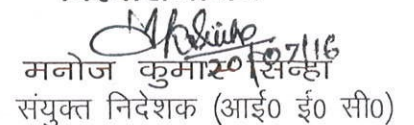 20/07/16
मनोज कुमार सिन्हा
संयुक्त निदेशक (आई0 ई0 सी0)